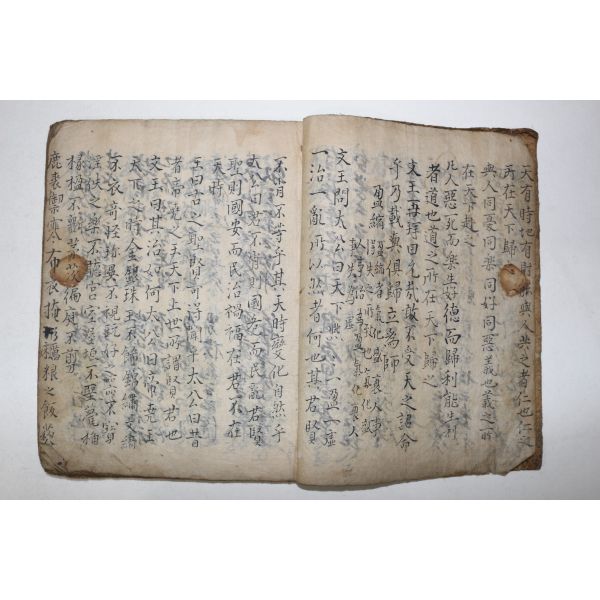 天有時地有財能與人共之者仁也仁之
所在天下歸之
與人同憂同樂同好同惡義也義之所
在天下赴之
凡人惡死而樂生好德而歸利能生利
者道也道之所在天下歸之
文王再拜曰允哉敢不受天之詔命
乎乃載與俱歸立為師
盈縮
文王問太公曰天下熙一盈一虛
一治一亂所以然者何也其君賢
不肖不等乎其天時變化自然乎
太公曰君不肖則國危而民亂君賢
聖則國安而民治禍福在君不在
天時
王曰古之聖賢可得聞乎太公曰昔
者帝堯之王天下上世所謂賢君也
文王曰其治如何太公曰帝堯王
天下之時金銀珠玉不飾錦繡文綺
不衣奇怪珍異不視玩好之器不寶
淫泆之樂不聽宮垣屋室不堊甍桷
椽楹不斲茅茨徧庭不剪
鹿裘禦寒布衣掩形糲粱之飯藜